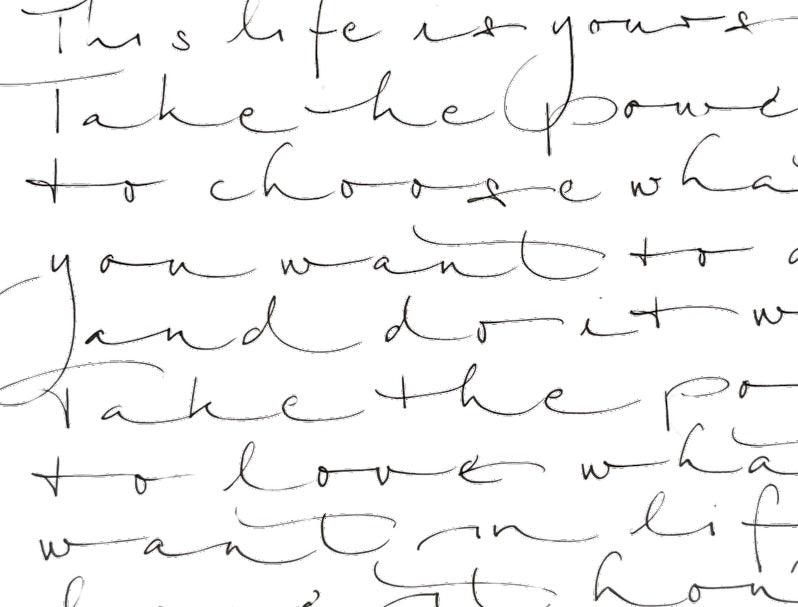 This life is yours
Take the powe
to choose wha
you want to
and do it w
Take the po
to love wha
want in lif
hon